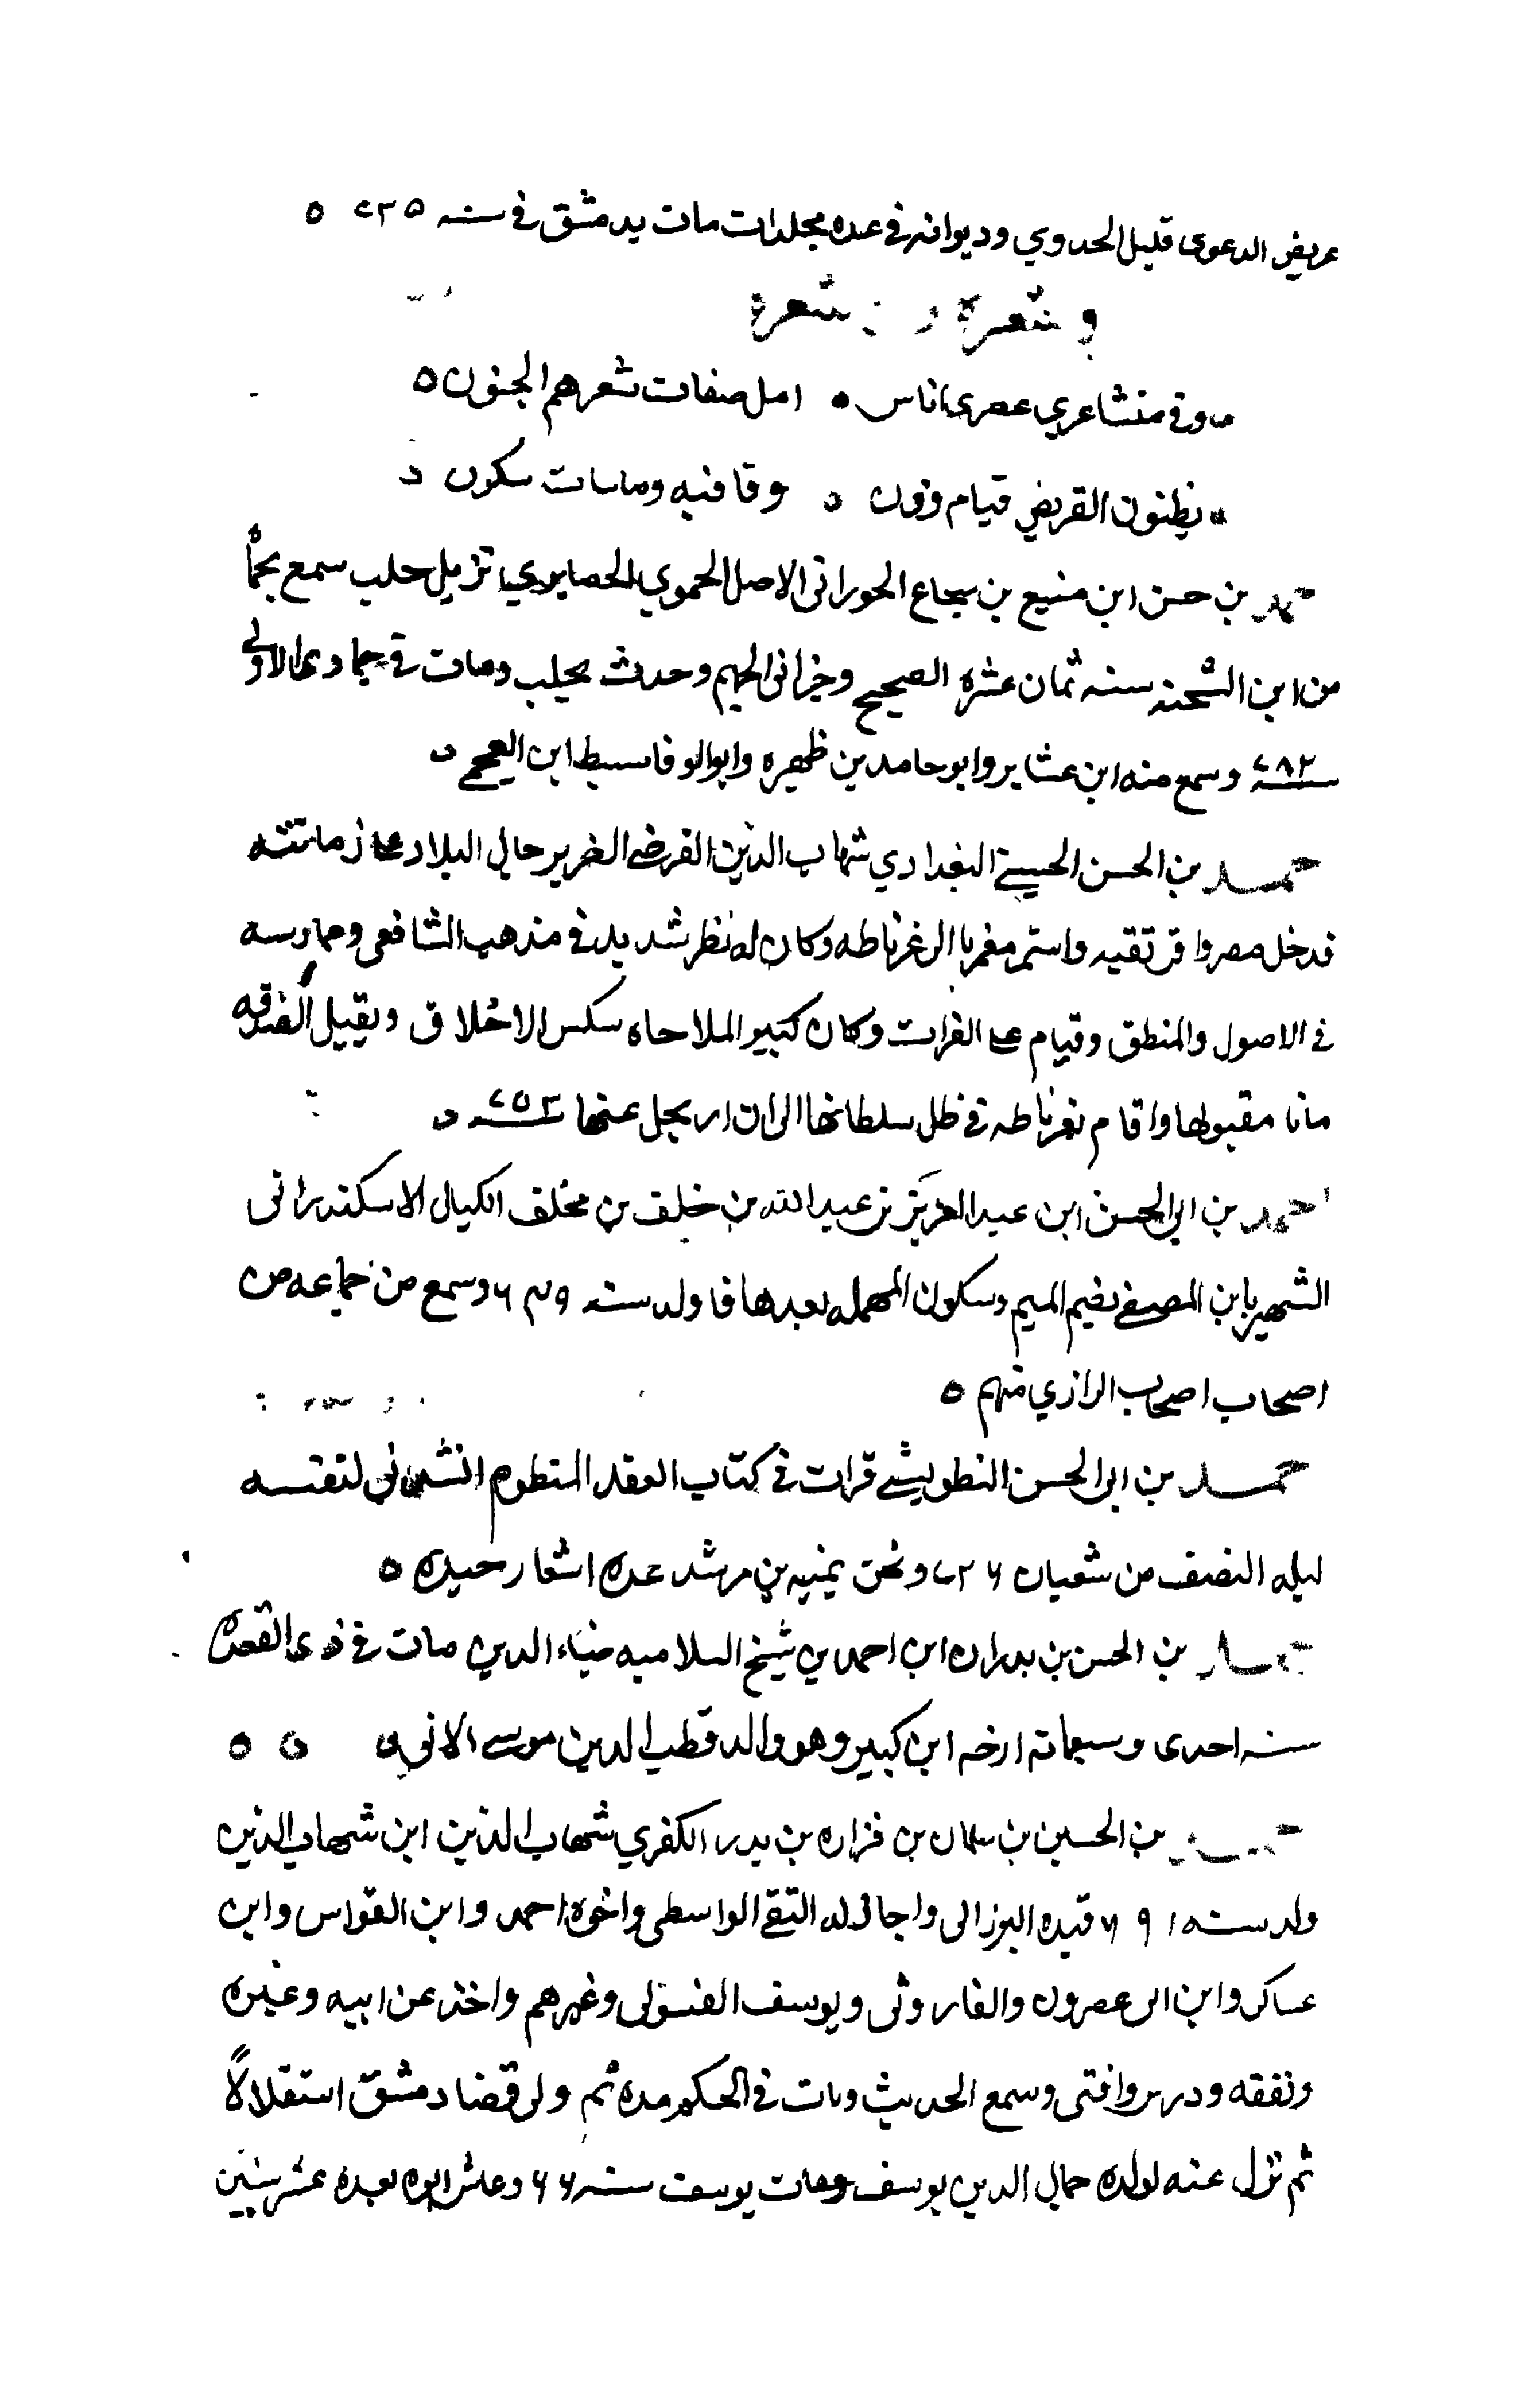 عريض الدعوى قليل الجدوي وديوانه في عده مجلدات مات بدمشق في سنه ٧٢٥ ٥
و شعره شعره
متشاعري عصري اناس ٥ اقل صفات شعرهم الجنون ٥
يظنون القريض قيام وزن ٥ وقافيه وما سات سكون
احمد بن حسن ابن منيع بن سجاع الحوراني الاصل الحموي نزيل حلب سمع بحماه
من ابن الشحنه سنه ثمان عشره الصحيح وجزابي الجهم وحدث بحلب ومات في جمادى الاولى
سنه ٧٨٢ وسمع منه ابن عشاير وابو حامد بن ظهيره وابوالوفا سبط ابن العجمي
احمد بن الحسن الحسيني البغدادي شهاب الدين الفرضي الضرير جال البلاد على زمانته
فدخل مصر واستمر مغربا الى غرناطه وكان له نظر شديد في مذهب الشافعي وممارسه
في الاصول والمنطق وقيام على القرات وكان كثير الملاحاه شكس الاخلاق ويقبل الصدقه
مقبولها واقام بغرناطه في ظل سلطانها الى ان ارتحل عنها سنه ٧٥٣
احمد بن ابي الحسن ابن عبدالعزيز بن عبدالله بن خلف بن مخلف الكيال الاسكندراني
الشهير بابن المصفي بضم الميم وسكون المهمله بعدها فا ولد سنه ٦٤٩ وسمع من جماعه من
اصحاب اصحاب الرازي منهم ٥
احمد بن ابي الحسن قرات في كتاب العقد المنظوم انشدني لنفسه
ليله النصف من شعبان ٧٢٦ ونحن بمنيه بن مرشد عده اشعار حيده ٥
احمد بن الحسن بن بدران ابن احمد بن شيخ السلاميه ضياء الدين مات في ذى القعده
سنه احدى وسبعماته ارخه ابن كبير وهو والد قطب الدين موسى الاتي ٥ ٥ ٥
احمد بن الحسين بن سلمان بن فزاره بن بدر الكفري شهاب الدين ابن شهاب الدين
ولد سنه ٦٩١ قيده البرزالي واجاز له التقي الواسطي واخوه احمد وابن القواس وابن
عساكر وابن ابي عصرون والفاروثي ويوسف الغسولي وغيرهم واخذ عن ابيه وغيره
وتفقه ودرس وافتى وسمع الحديث وناب في الحكم مده ثم ولى قضا دمشق استقلالًا
ثم نزل عنه لولده جمال الدين يوسف ومات يوسف سنه ٦٦ وعاش ابوه بعده عشر سنين